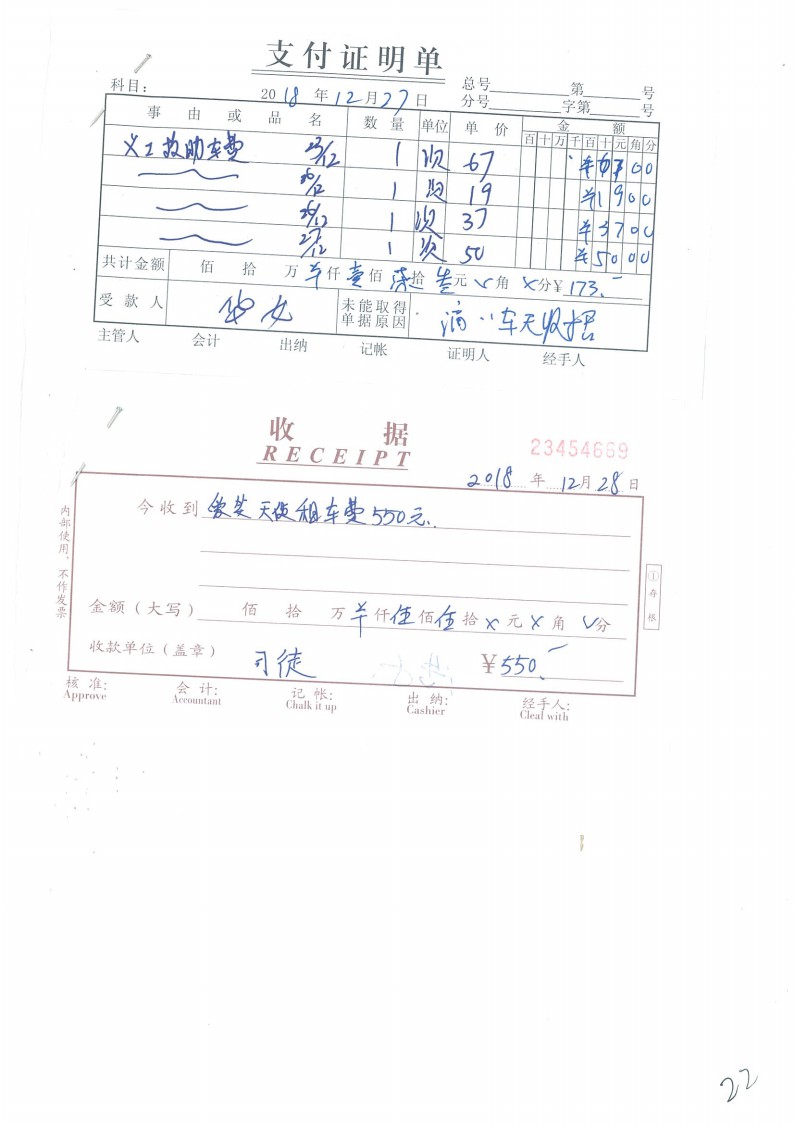 支付证明单
科目: 2018年12月27日 总号 第 号
分号 字第 号
事由或品名 数量 单位 单价 金额
百十万千百十元角分
义工救助车费 25/12 1 次 67 ¥6700
1 次 19 ¥1900
26/12 1 次 37 ¥3700
27/12 1 次 50 ¥5000
共计金额 佰 拾 万 仟壹佰柒拾叁元 角 分 ¥173.-
受款人 未能取得单据原因 滴 车无收据
主管人 会计 出纳 记帐 证明人 经手人
收据
RECEIPT
23454669
2018年12月28日
今收到 天使租车费550元.
金额(大写) 佰 拾 万 仟伍佰伍拾 元 角 分
收款单位(盖章) 司徒 ¥550.-
内部使用,不作发票
①存根
核准: 会计: 记帐: 出纳: 经手人:
Approve Accountant Chalk it up Cashier Cleal with
22